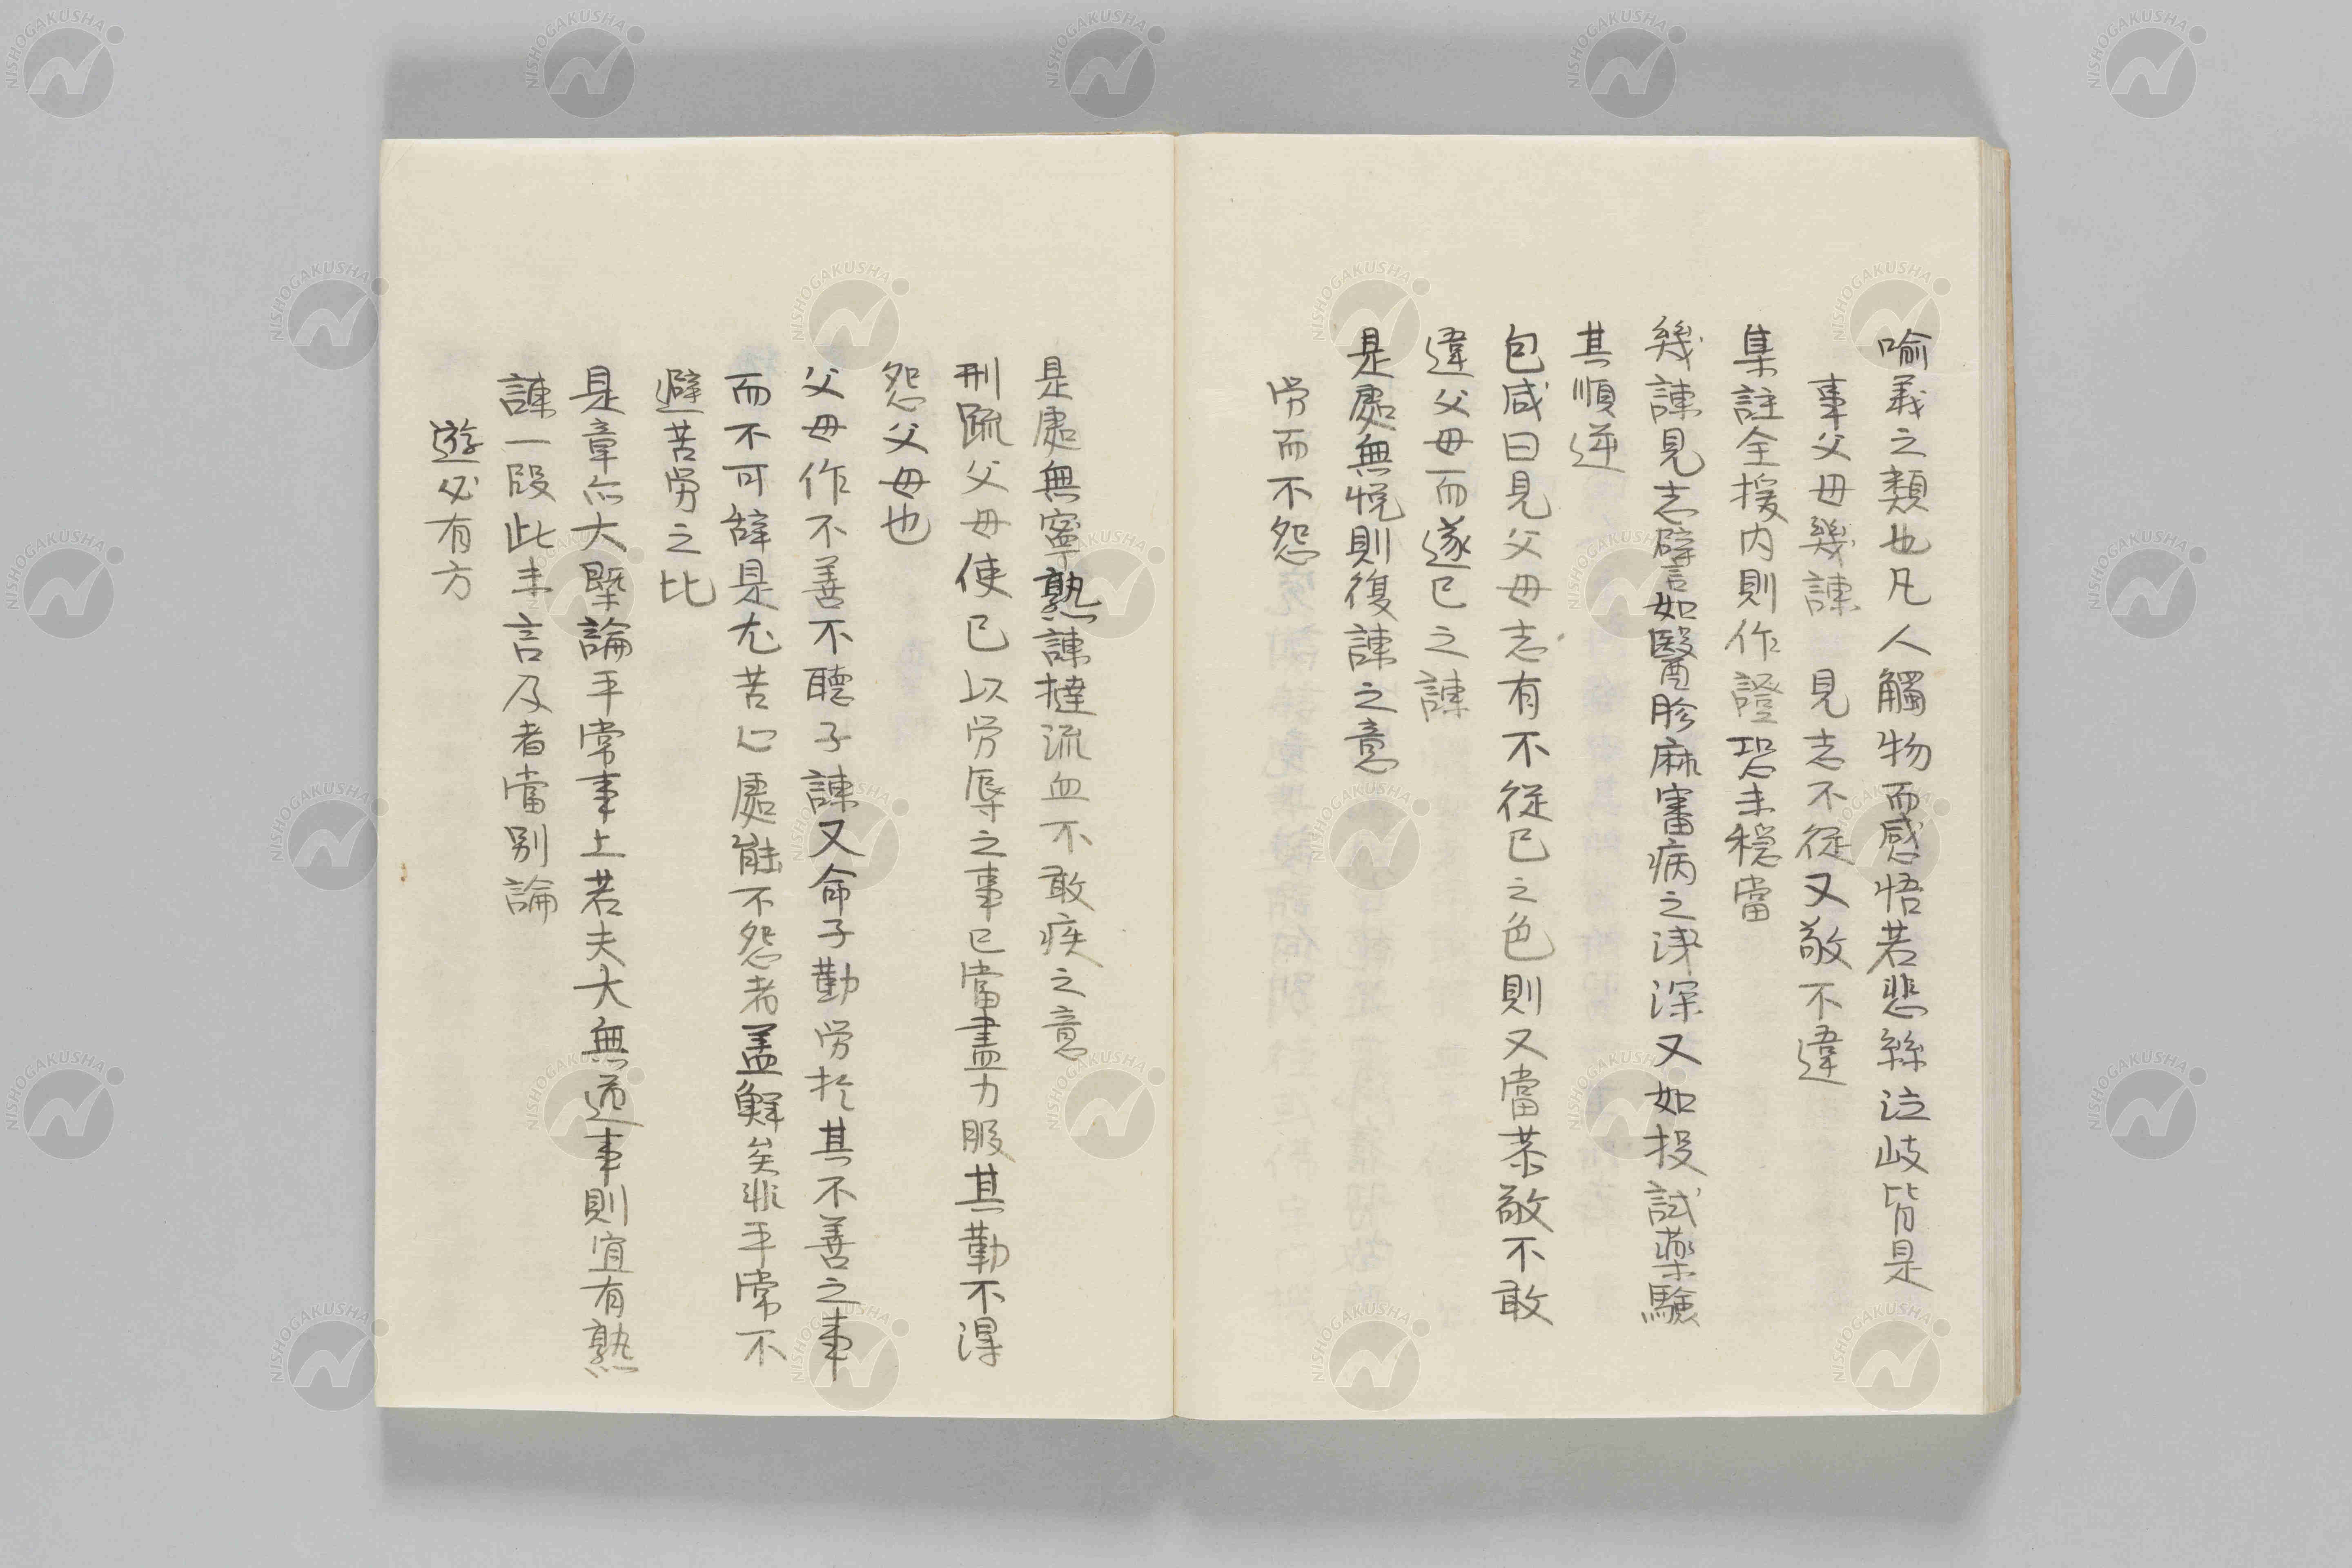 喻義之類也凡人觸物而感悟若悲絲泣歧皆是
事父母幾諫 見志不從又敬不違
集註全援内則作證恐未穏當
幾諫見志譬如醫胗麻審病之浅深又如投試藥驗
其順逆
包咸曰見父母志有不從已之色則又當恭敬不敢
違父母而遂已之諫
是處無悦則復諫之意
労而不怨
是處無寧熟諫撻流血不敢疾之意
刑疏父母使已以労辱之事已當盡力服其勤不得
怨父母也
父母作不善不聽子諫又命子勤労於其不善之事
而不可辞是尤苦心處能不怨者盖鮮矣非平常不
避苦労之比
是章亦大槩論平常事上若夫大無道事則宜有熟
諫一段此未言及者當別論
遊必有方
NISHOGAKUSHA